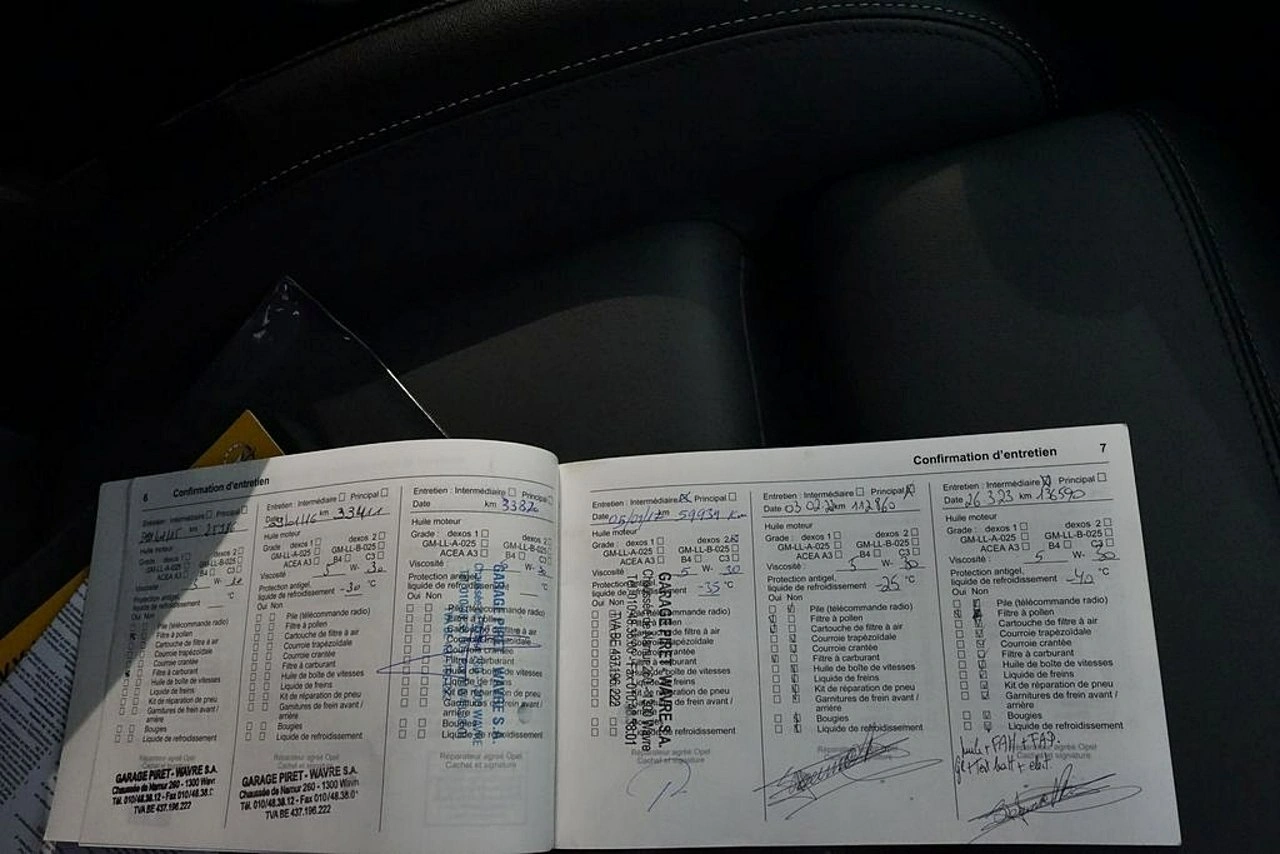 6 Confirmation d'entretien
Entretien : Intermédiaire Principal
km
Huile moteur
Grade : dexos 1 dexos 2
GM-LL-A-025 GM-LL-B-025
ACEA A3 B4 C3
Viscosité W-
Protection antigel,
liquide de refroidissement °C
Oui Non
Pile (télécommande radio)
Filtre à pollen
Cartouche de filtre à air
Courroie trapézoïdale
Courroie crantée
Filtre à carburant
Huile de boîte de vitesses
Liquide de freins
Kit de réparation de pneu
Garnitures de frein avant /
arrière
Bougies
Liquide de refroidissement
Réparateur agréé Opel
Cachet et signature
GARAGE PIRET - WAVRE S.A.
Chaussée de Namur 260 - 1300 Wavre
Tél. 010/48.38.12 - Fax 010/48.38.01
TVA BE 437.196.222
Entretien : Intermédiaire Principal
Date km 33411
Huile moteur
Grade : dexos 1 dexos 2
GM-LL-A-025 GM-LL-B-025
ACEA A3 B4 C3
Viscosité 5 W- 30
Protection antigel,
liquide de refroidissement -30 °C
Oui Non
Pile (télécommande radio)
Filtre à pollen
Cartouche de filtre à air
Courroie trapézoïdale
Courroie crantée
Filtre à carburant
Huile de boîte de vitesses
Liquide de freins
Kit de réparation de pneu
Garnitures de frein avant /
arrière
Bougies
Liquide de refroidissement
Réparateur agréé Opel
Cachet et signature
GARAGE PIRET - WAVRE S.A.
Chaussée de Namur 260 - 1300 Wavre
Tél. 010/48.38.12 - Fax 010/48.38.01
TVA BE 437.196.222
Entretien : Intermédiaire Principal
Date km 33820
Huile moteur
Grade : dexos 1 dexos 2
GM-LL-A-025 GM-LL-B-025
ACEA A3 B4 C3
Viscosité W- 30
Protection antigel,
liquide de refroidissement °C
Oui Non
GARAGE PIRET - WAVRE S.A.
Liquide de refroidissement
Réparateur agréé Opel
Cachet et signature
Confirmation d'entretien 7
Entretien : Intermédiaire Principal
Date 05/01/17 km 59939 km
Huile moteur
Grade : dexos 1 dexos 2
GM-LL-A-025 GM-LL-B-025
ACEA A3 B4 C3
Viscosité 5 W- 30
Protection antigel,
liquide de refroidissement -35 °C
Oui Non
Pile (télécommande radio)
GARAGE PIRET - WAVRE S.A.
TVA BE 437.196.222
Réparateur agréé Opel
Cachet et signature
Entretien : Intermédiaire Principal
Date 03 02 22 km 112860
Huile moteur
Grade : dexos 1 dexos 2
GM-LL-A-025 GM-LL-B-025
ACEA A3 B4 C3
Viscosité 5 W- 30
Protection antigel,
liquide de refroidissement -25 °C
Oui Non
Pile (télécommande radio)
Filtre à pollen
Cartouche de filtre à air
Courroie trapézoïdale
Courroie crantée
Filtre à carburant
Huile de boîte de vitesses
Liquide de freins
Kit de réparation de pneu
Garnitures de frein avant /
arrière
Bougies
Liquide de refroidissement
Réparateur agréé Opel
Cachet et signature
Entretien : Intermédiaire Principal
Date 26 3 23 km 136590
Huile moteur
Grade : dexos 1 dexos 2
GM-LL-A-025 GM-LL-B-025
ACEA A3 B4 C3
Viscosité 5 W- 30
Protection antigel,
liquide de refroidissement -40 °C
Oui Non
Pile (télécommande radio)
Filtre à pollen
Cartouche de filtre à air
Courroie trapézoïdale
Courroie crantée
Filtre à carburant
Huile de boîte de vitesses
Liquide de freins
Kit de réparation de pneu
Garnitures de frein avant /
arrière
Bougies
Liquide de refroidissement
Réparateur agréé Opel
Cachet et signature